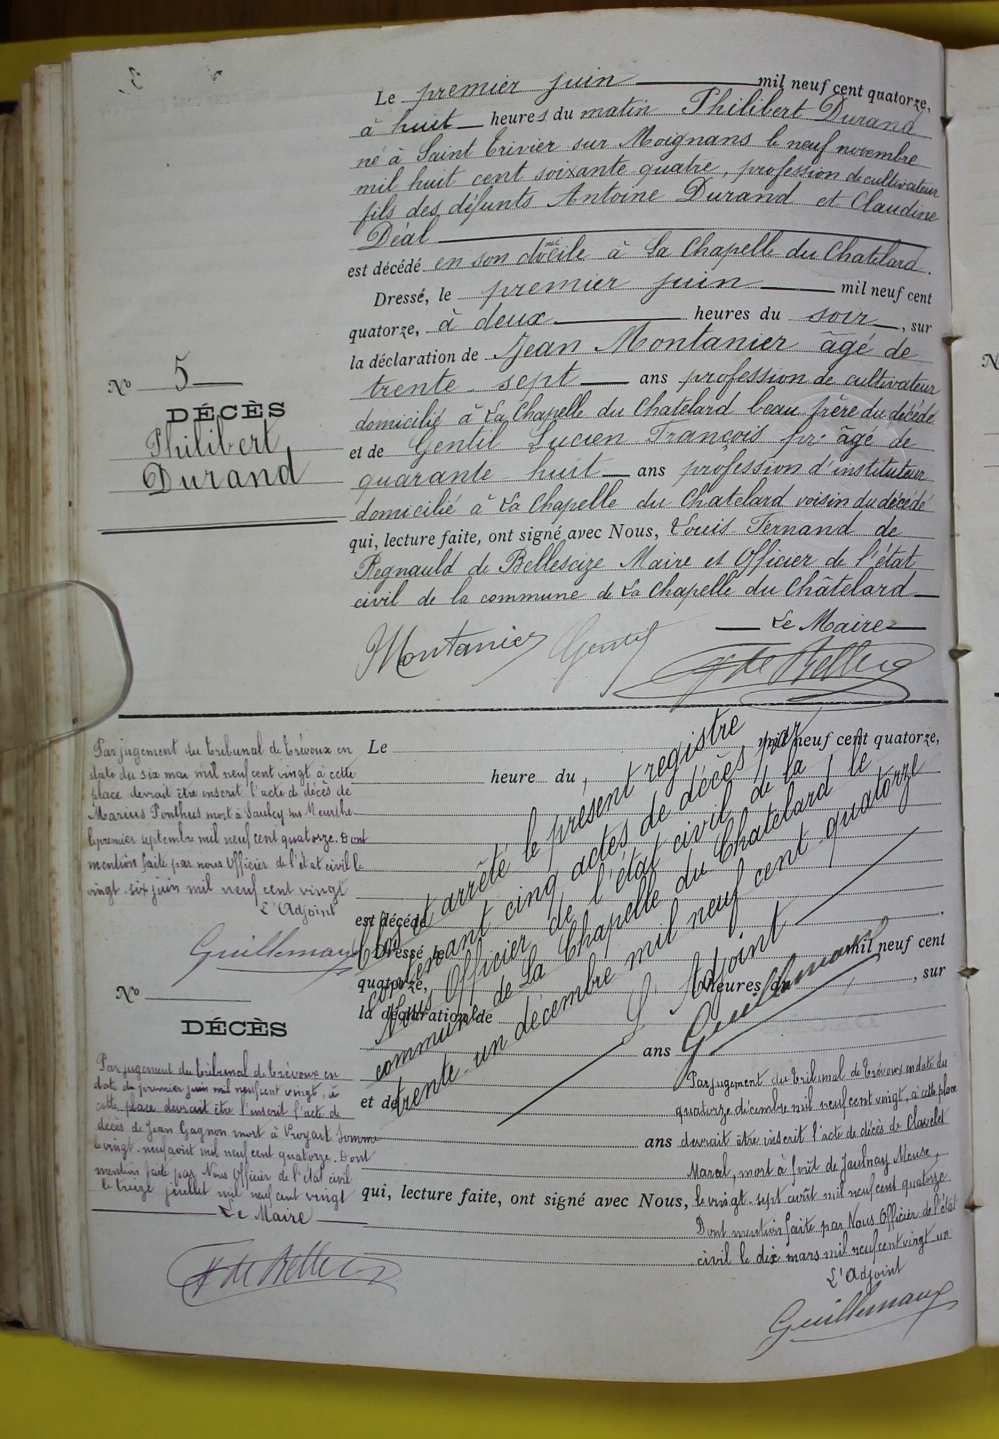 N° 5
DÉCÈS
Philibert
Durand
Le premier juin mil neuf cent quatorze,
à huit heures du matin Philibert Durand
né à Saint Trivier sur Moignans le neuf novembre
mil huit cent soixante quatre, profession de cultivateur
fils des défunts Antoine Durand et Claudine
Déal
est décédé en son domicile à La Chapelle du Chatelard.
Dressé, le premier juin mil neuf cent
quatorze, à deux heures du soir, sur
la déclaration de Jean Montanier âgé de
trente-sept ans profession de cultivateur
domicilié à La Chapelle du Chatelard beau frère du décédé
et de Gentil Lucien François âgé de
quarante huit ans profession d'instituteur
domicilié à La Chapelle du Chatelard voisin du décédé
qui, lecture faite, ont signé avec Nous, Louis Fernand de
Regnauld de Bellescize Maire et Officier de l'état
civil de la commune de La Chapelle du Châtelard
Le Maire
Montanier Gentil
de Bellescize
Par jugement du tribunal de Trévoux en
date du six mai mil neuf cent vingt à cette
place devrait être inscrit l'acte de décès de
Marius Ponthus mort à Saulcy sur Meurthe
le premier septembre mil neuf cent quatorze. Dont
mention faite par nous Officier de l'état civil le
vingt-six juin mil neuf cent vingt
L'Adjoint
Guillemaux
N°
DÉCÈS
Par jugement du tribunal de Trévoux en
date du premier juin mil neuf cent vingt, à
cette place devrait être inscrit l'acte de
décès de Jean Gagnon mort à Proyart Somme
le vingt-neuf août mil neuf cent quatorze. Dont
mention faite par Nous Officier de l'état civil
le treize juillet mil neuf cent vingt
Le Maire
de Bellescize
Le mil neuf cent quatorze,
heure du
est décédé
Dressé, le mil neuf cent
quatorze, heures du , sur
la déclaration de
ans
et de
ans
qui, lecture faite, ont signé avec Nous,
Clos et arrêté le présent registre
contenant cinq actes de décès par
Nous Officier de l'état civil de la
commune de La Chapelle du Chatelard le
trente-un décembre mil neuf cent quatorze
L'Adjoint
Guillemaux
Par jugement du tribunal de Trévoux en date du
quatorze décembre mil neuf cent vingt, à cette place
devrait être inscrit l'acte de décès de Clavelet
Marcel, mort à forêt de Jaulnay Meuse,
le vingt-sept août mil neuf cent quatorze.
Dont mention faite par Nous Officier de l'état
civil le dix mars mil neuf cent vingt un
L'Adjoint
Guillemaux